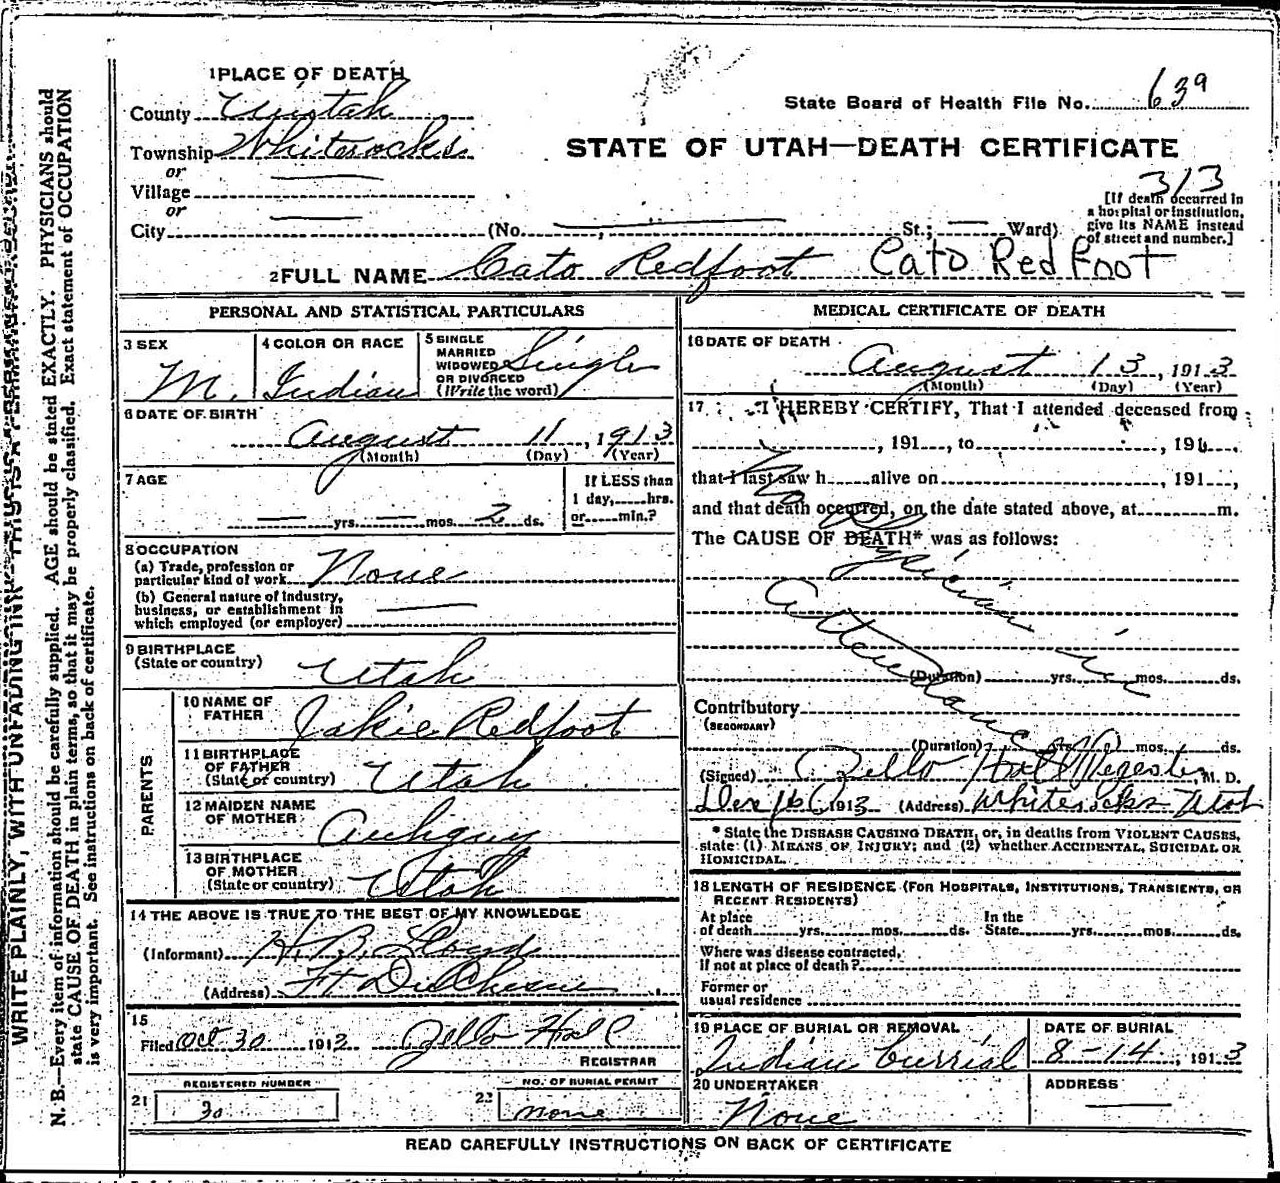 WRITE PLAINLY, WITH UNFADING INK—THIS IS A PERMANENT RECORD
N. B.—Every item of information should be carefully supplied. AGE should be stated EXACTLY. PHYSICIANS should
state CAUSE OF DEATH in plain terms, so that it may be properly classified. Exact statement of OCCUPATION
is very important. See instructions on back of certificate.
1 PLACE OF DEATH
County Uintah
Township Whiterocks
or
Village
or
City (No. St.; Ward)
State Board of Health File No. 639
STATE OF UTAH—DEATH CERTIFICATE
313
[If death occurred in
a hospital or institution,
give its NAME instead
of street and number.]
2 FULL NAME Cato Redfoot Cato Red Foot
PERSONAL AND STATISTICAL PARTICULARS
3 SEX
M.
4 COLOR OR RACE
Indian
5 SINGLE
MARRIED
WIDOWED
OR DIVORCED
(Write the word)
Single
6 DATE OF BIRTH
August 11, 1913
(Month) (Day) (Year)
7 AGE
— yrs. — mos. 2 ds.
If LESS than
1 day, hrs.
or min.?
8 OCCUPATION
(a) Trade, profession or
particular kind of work None
(b) General nature of industry,
business, or establishment in
which employed (or employer)
9 BIRTHPLACE
(State or country) Utah
PARENTS
10 NAME OF
FATHER Jakie Redfoot
11 BIRTHPLACE
OF FATHER
(State or country) Utah
12 MAIDEN NAME
OF MOTHER
13 BIRTHPLACE
OF MOTHER
(State or country) Utah
14 THE ABOVE IS TRUE TO THE BEST OF MY KNOWLEDGE
(Informant) H. B. Lloyd
(Address) Ft Duchesne
15
Filed Oct 30 1913 Zello Hall
REGISTRAR
REGISTERED NUMBER
21 30
NO. OF BURIAL PERMIT
22 none
MEDICAL CERTIFICATE OF DEATH
16 DATE OF DEATH
August 13, 1913
(Month) (Day) (Year)
17 I HEREBY CERTIFY, That I attended deceased from
, 191 , to , 191 ,
that I last saw h alive on , 191 ,
and that death occurred, on the date stated above, at m.
The CAUSE OF DEATH* was as follows:
No Physician in
Attendance
(Duration) yrs. mos. ds.
Contributory
(SECONDARY)
(Duration) yrs. mos. ds.
(Signed) Zello Hall Register M. D.
1913 (Address) Whiterocks Utah
* State the DISEASE CAUSING DEATH, or, in deaths from VIOLENT CAUSES,
state: (1) MEANS OF INJURY; and (2) whether ACCIDENTAL, SUICIDAL OR
HOMICIDAL.
18 LENGTH OF RESIDENCE (FOR HOSPITALS, INSTITUTIONS, TRANSIENTS, OR
RECENT RESIDENTS)
At place
of death yrs. mos. ds.
In the
State yrs. mos. ds.
Where was disease contracted,
if not at place of death?
Former or
usual residence
19 PLACE OF BURIAL OR REMOVAL
Indian Currial
DATE OF BURIAL
8-14, 1913
20 UNDERTAKER
None
ADDRESS
READ CAREFULLY INSTRUCTIONS ON BACK OF CERTIFICATE